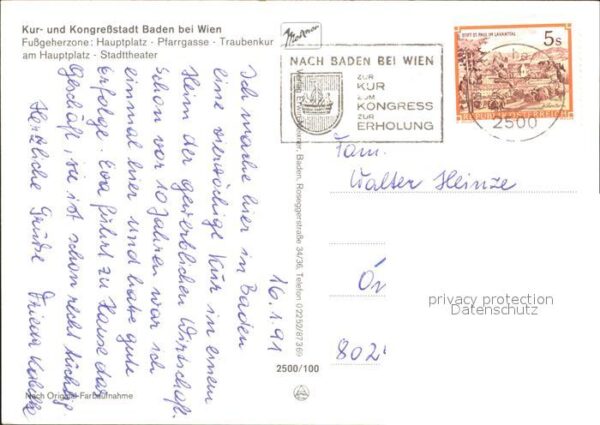 Kur- und Kongreßstadt Baden bei Wien
Fußgeherzone: Hauptplatz · Pfarrgasse · Traubenkur
am Hauptplatz · Stadttheater
16.1.91
Ich mache hier in Baden
eine vierwöchige Kur in einem
Heim der gewerblichen Wirtschaft.
Schon vor 10 Jahren war ich
einmal hier und hatte gute
Erfolge. Eva führt zu Hause das
Geschäft, sie ist schon recht tüchtig.
Herzliche Grüße
Nach Original-Farbaufnahme
Baden, Roseggerstraße 34/36, Telefon 02252/87369
2500/100
NACH BADEN BEI WIEN
ZUR
KUR
ZUM
KONGRESS
ZUR
ERHOLUNG
STIFT ST. PAUL IM LAVANTTAL
5 S
REPUBLIK ÖSTERREICH
2500
Fam.
Walter Heinze
802
privacy protection
Datenschutz